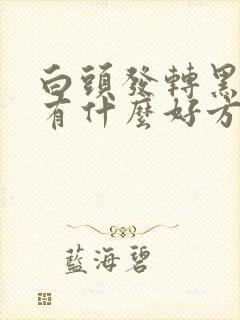 白頭發轉黑
有什麼好方
藍海碧